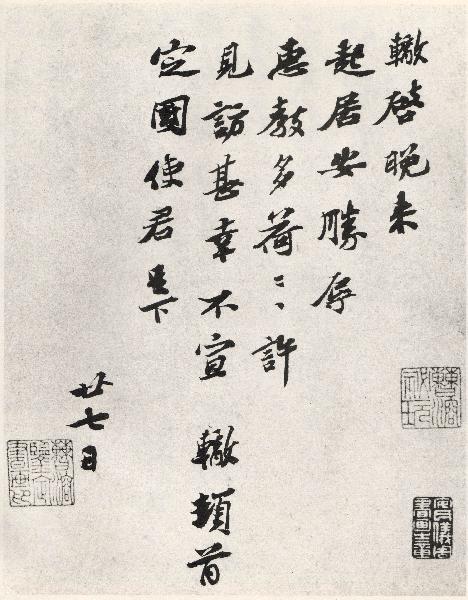 轍啓晚來
起居安勝辱
惠教多荷〻許
見訪甚幸不宣　轍頓首
定國使君足下
廿七日